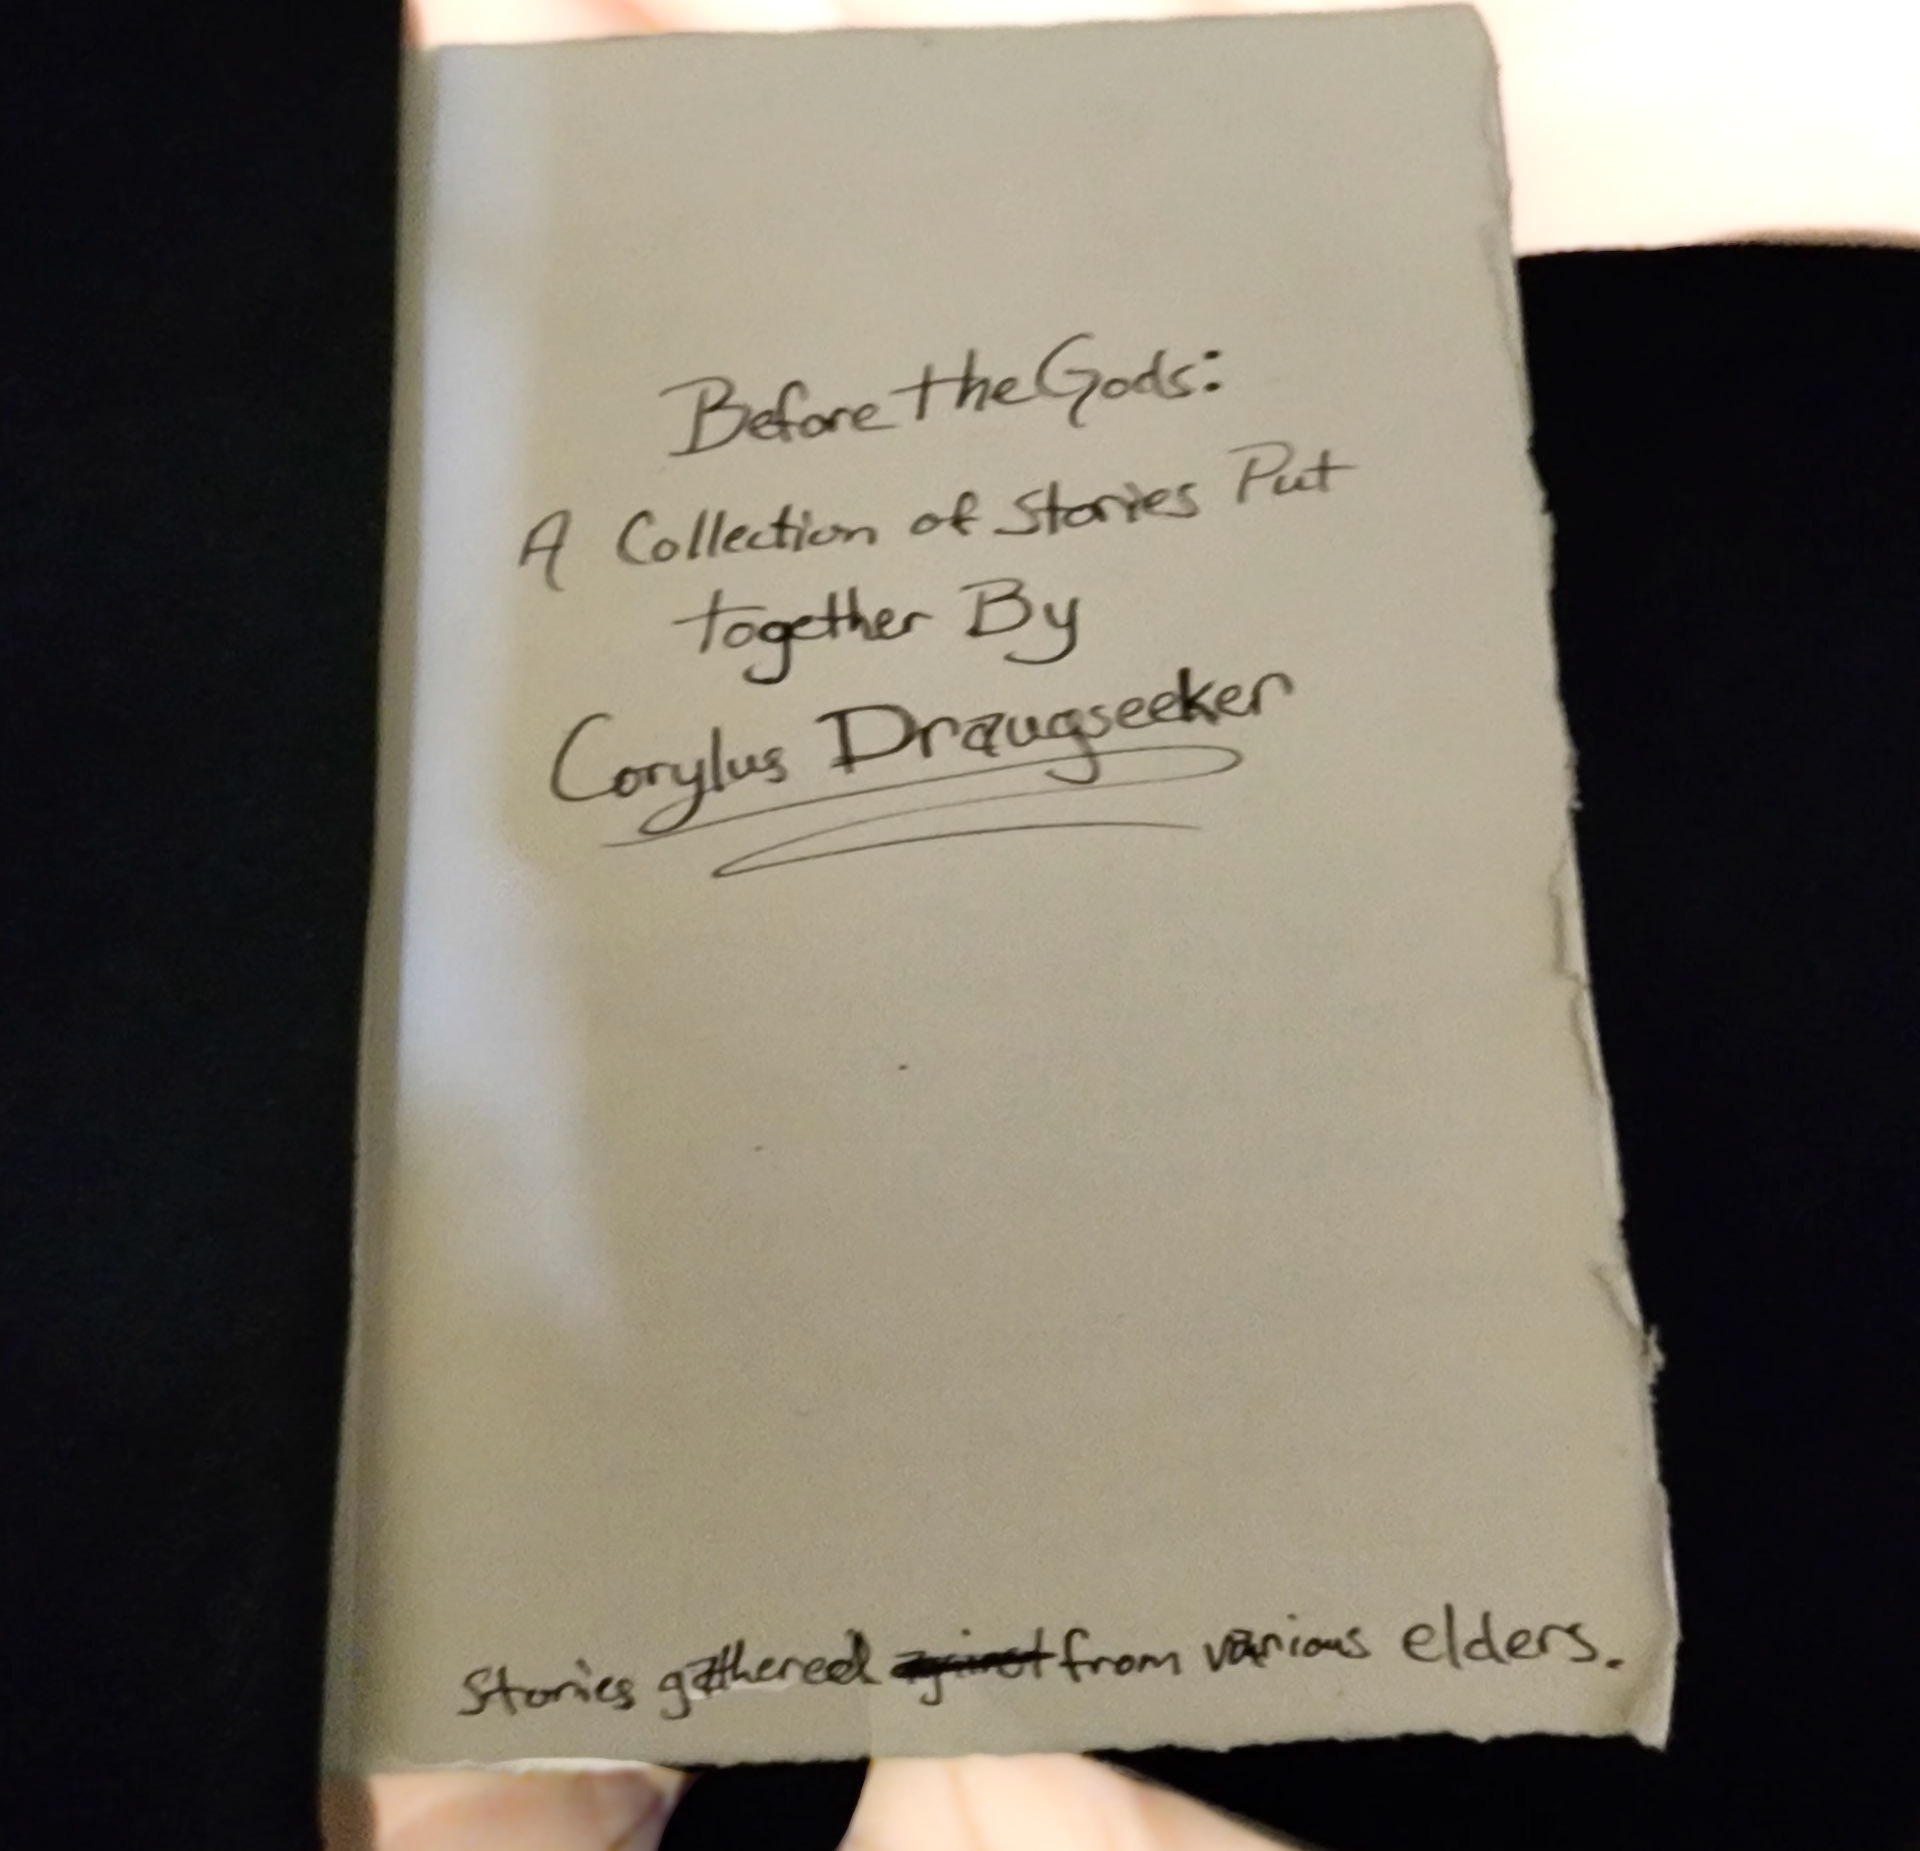 Before the Gods:
A Collection of Stories Put
together By
Corylus Draugseeker
Stories gathered from various elders.